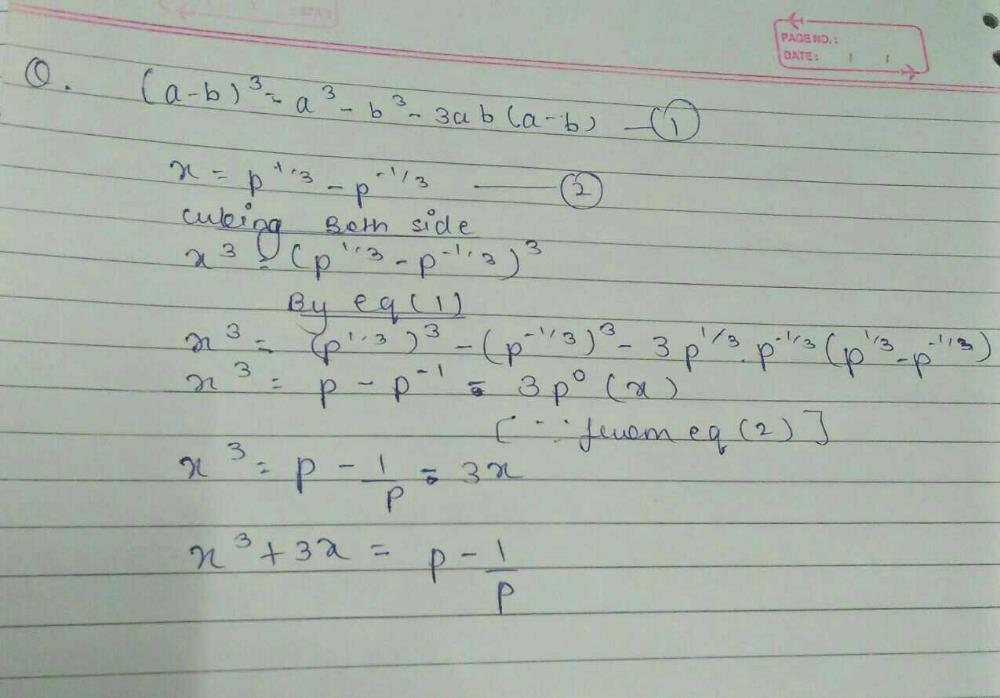 PAGE NO.:
DATE: / /
Q. (a-b)³ = a³ - b³ - 3ab(a-b) —①
x = p^1/3 - p^-1/3 —②
cubing Both side
x³ = (p^1/3 - p^-1/3)³
By eq(1)
x³ = (p^1/3)³ - (p^-1/3)³ - 3p^1/3.p^-1/3(p^1/3-p^-1/3)
x³ = p - p^-1 - 3p⁰(x)
[∵ from eq(2)]
x³ = p - 1/p - 3x
x³ + 3x = p - 1/p